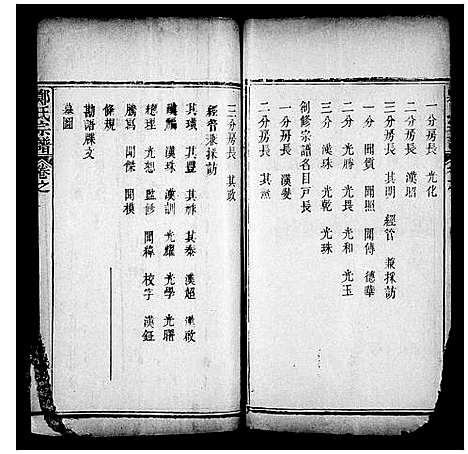 一分房長 光化
二分房長 漢昭
三分房長 其明 經管 兼採訪
一分 開質 開照 開傳 德華
二分 光勝 光畏 光和 光玉
三分 漢珠 光乾 光珠
創修宗譜名目戸長
一分房長 漢燮
二分房長 其
三分房長 其政
經管兼採訪
其璜 其祥 其泰 漢超 漢政
漢鵬 漢珠 漢訓 光耀 光學 光騰
總理 光恕 監診 開緯 校字 漢鈺
謄寫 開傑 開模
條規
勘語牌文
墓圖
鄭氏宗譜 卷之